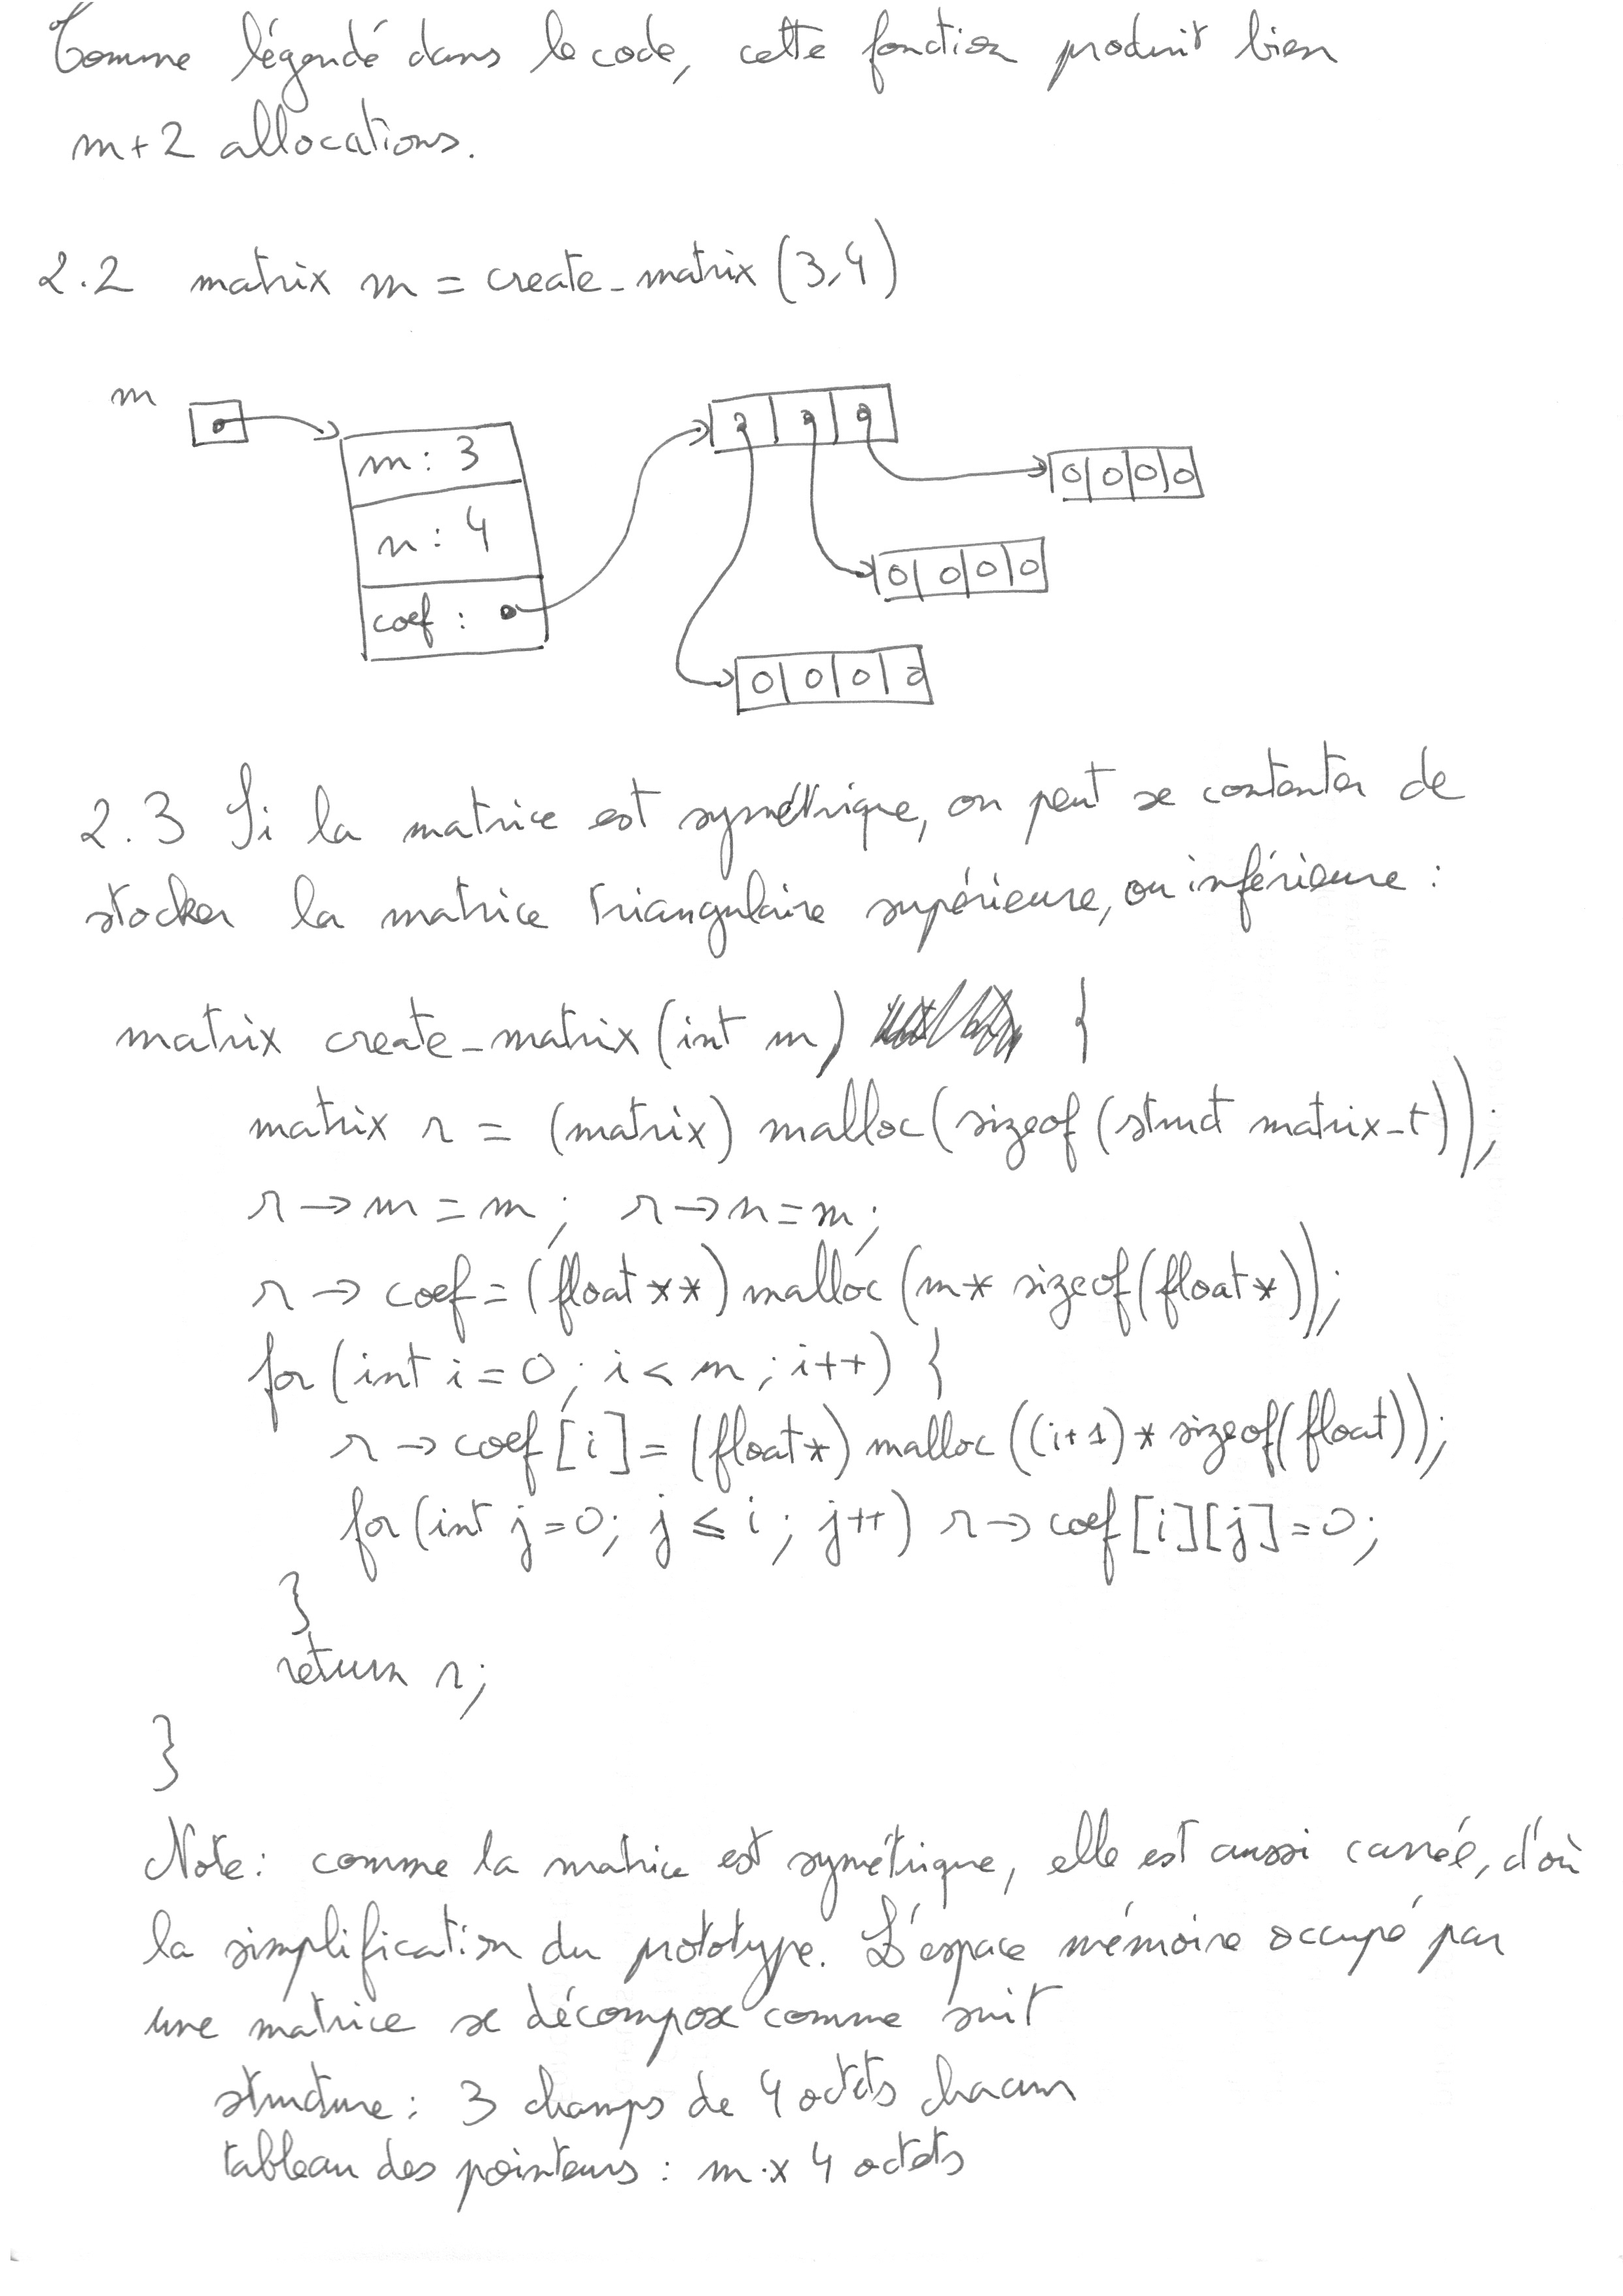 Comme légendé dans le code, cette fonction produit bien
m+2 allocations.
2.2 matrix m = create_matrix (3,4)
m
m: 3
n: 4
coef :
0 0 0 0
0 0 0 0
0 0 0 0
2.3 Si la matrice est symétrique, on peut se contenter de
stocker la matrice triangulaire supérieure, ou inférieure :
matrix create_matrix (int m) {
matrix r = (matrix) malloc (sizeof (struct matrix_t));
r → m = m; r → n = m;
r → coef = (float **) malloc (m * sizeof (float *));
for (int i = 0; i < m; i++) {
r → coef [i] = (float *) malloc ((i+1) * sizeof (float));
for (int j=0; j ≤ i; j++) r → coef [i][j] = 0;
}
return r;
}
Note: comme la matrice est symétrique, elle est aussi carrée, d'où
la simplification du prototype. L'espace mémoire occupé par
une matrice se décompose comme suit
structure: 3 champs de 4 octets chacun
tableau des pointeurs : m x 4 octets